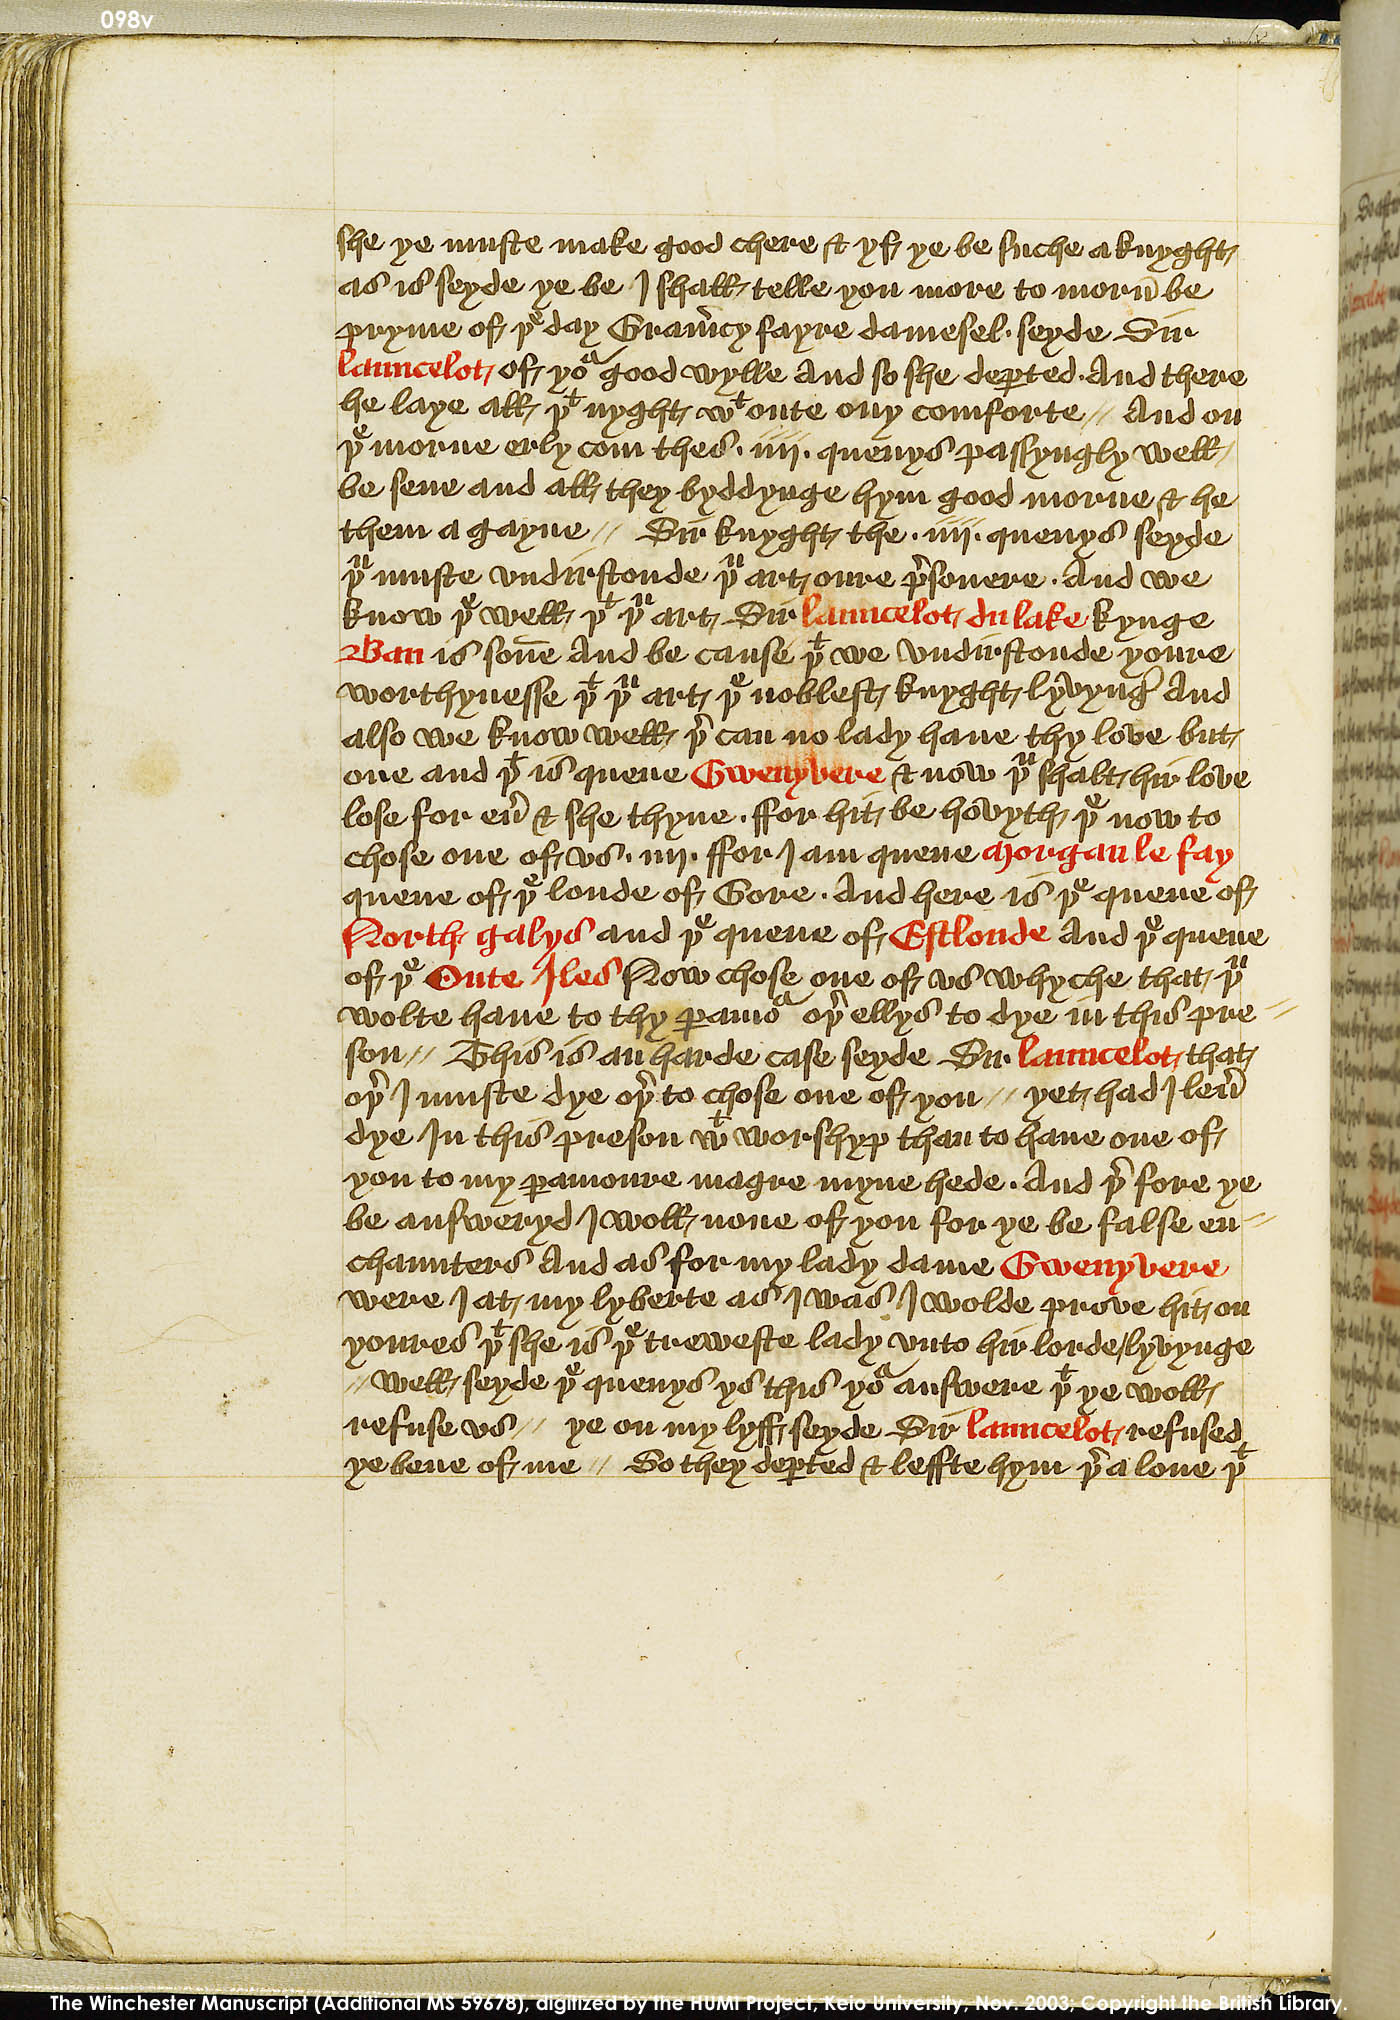 098v
she ye muste make good chere & yf ye be suche a knyght
as is seyde ye be I shall telle you more to morn̄ be
pryme of þe day Gram̄cy fayre damesel · seyde Sir
launcelot of yoᵃ good wylle And so she dep̱ted · And there
he laye all þᵗ nyght wᵗ oute ony comforte // And on
þe morne erly com thes · iiii · quenys passyngly well
be sene and all they byddynge hym good morne & he
them a gayne // Sir knyght the · iiii · quenys seyde
þᵘ muste vndirstonde þᵘ art oure p̉sonere · And we
know þe well þᵗ þᵘ art Sir launcelot du lake kynge
Ban is son̄e And be cause þᵗ we vndirstonde youre
worthynesse þᵗ þᵘ art þe noblest knyght lyvyng̉ And
also we know well þ̉ can no lady haue thy love but
one and þᵗ is quene Gwenyvere & now þᵘ shalt hir love
lose for eủ & she thyne · ffor hit be hovyth þe now to
chose one of vs · iiii · ffor I am quene Morgan le fay
quene of þe londe of Gore · And here is þe quene of
North galys and þe quene of Estlonde And þe quene
of þe Oute Iles Now chose one of vs whyche that þᵘ
wolte haue to thy p̱amoᵃ oþ̉ ellys to dye in this pre=
son // This is an harde case seyde Sir launcelot that
oþ̉ I muste dye oþ̉ to chose one of you // yet had I leủ
dye In this preson wᵗ worshyp than to haue one of
you to my p̱amoure magre myne hede · And þ̉ fore ye
be answeryd I woll none of you for ye be false en=
chaunters And as for my lady dame Gwenyvere
were I at my lyberte as I was I wolde prove hit on
youres þᵗ she is þe treweste lady vnto hir lorde lyvynge
// Well seyde þe quenys ys this yoᵃ answere þᵗ ye woll
refuse vs // ye on my lyff seyde Sir launcelot refused
ye bene of me // So they dep̱ted & leffte hym þ̉ a lone þᵗ
The Winchester Manuscript (Additional MS 59678), digitized by the HUMI Project, Keio University, Nov. 2003; Copyright the British Library.